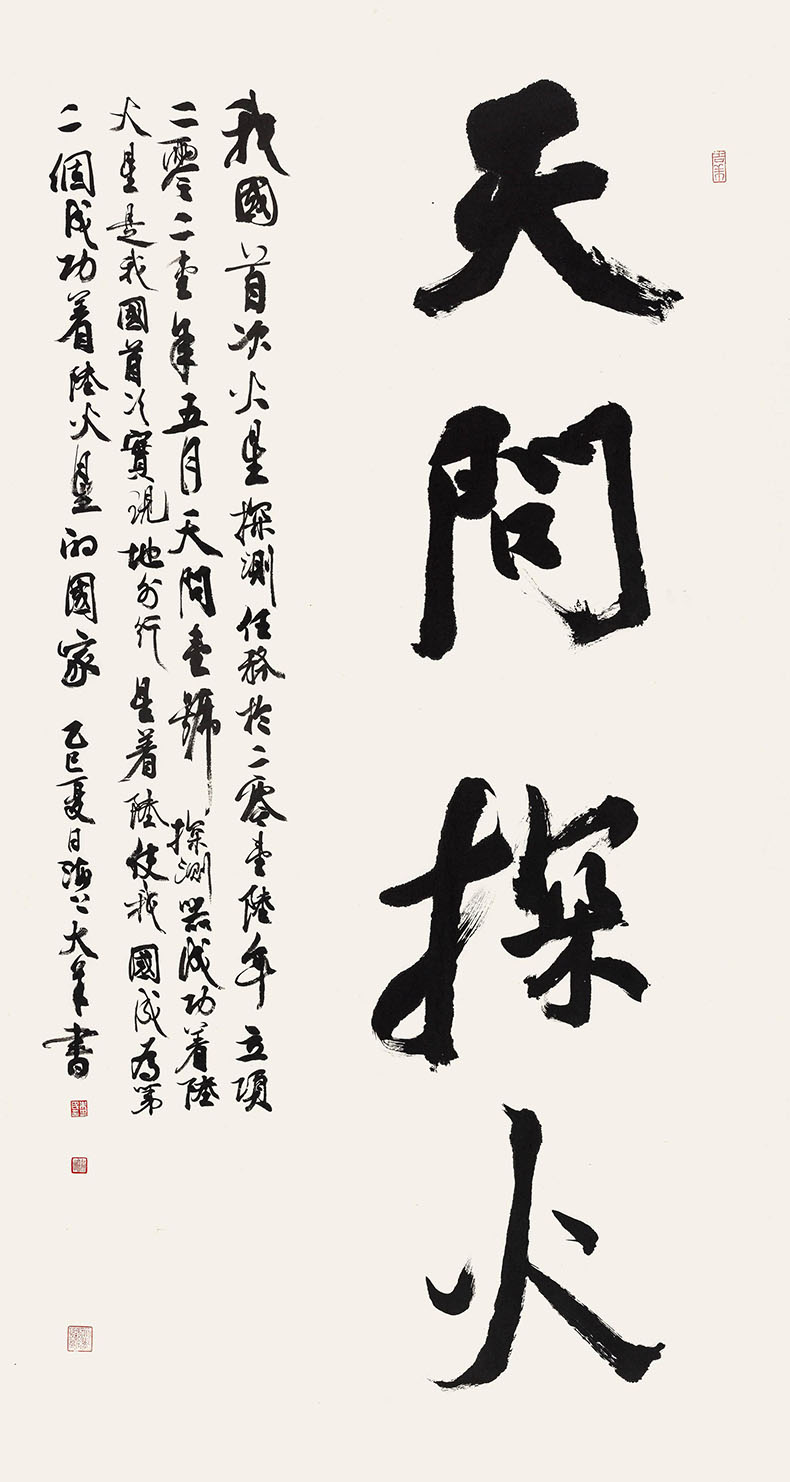 天問探火
我國首次火星探測任務於二零壹陸年立項
二零二壹年五月天問壹號探測器成功着陸
火星是我國首次實現地外行星着陸使我國成為第
二個成功着陸火星的國家 乙巳夏日海上大年書